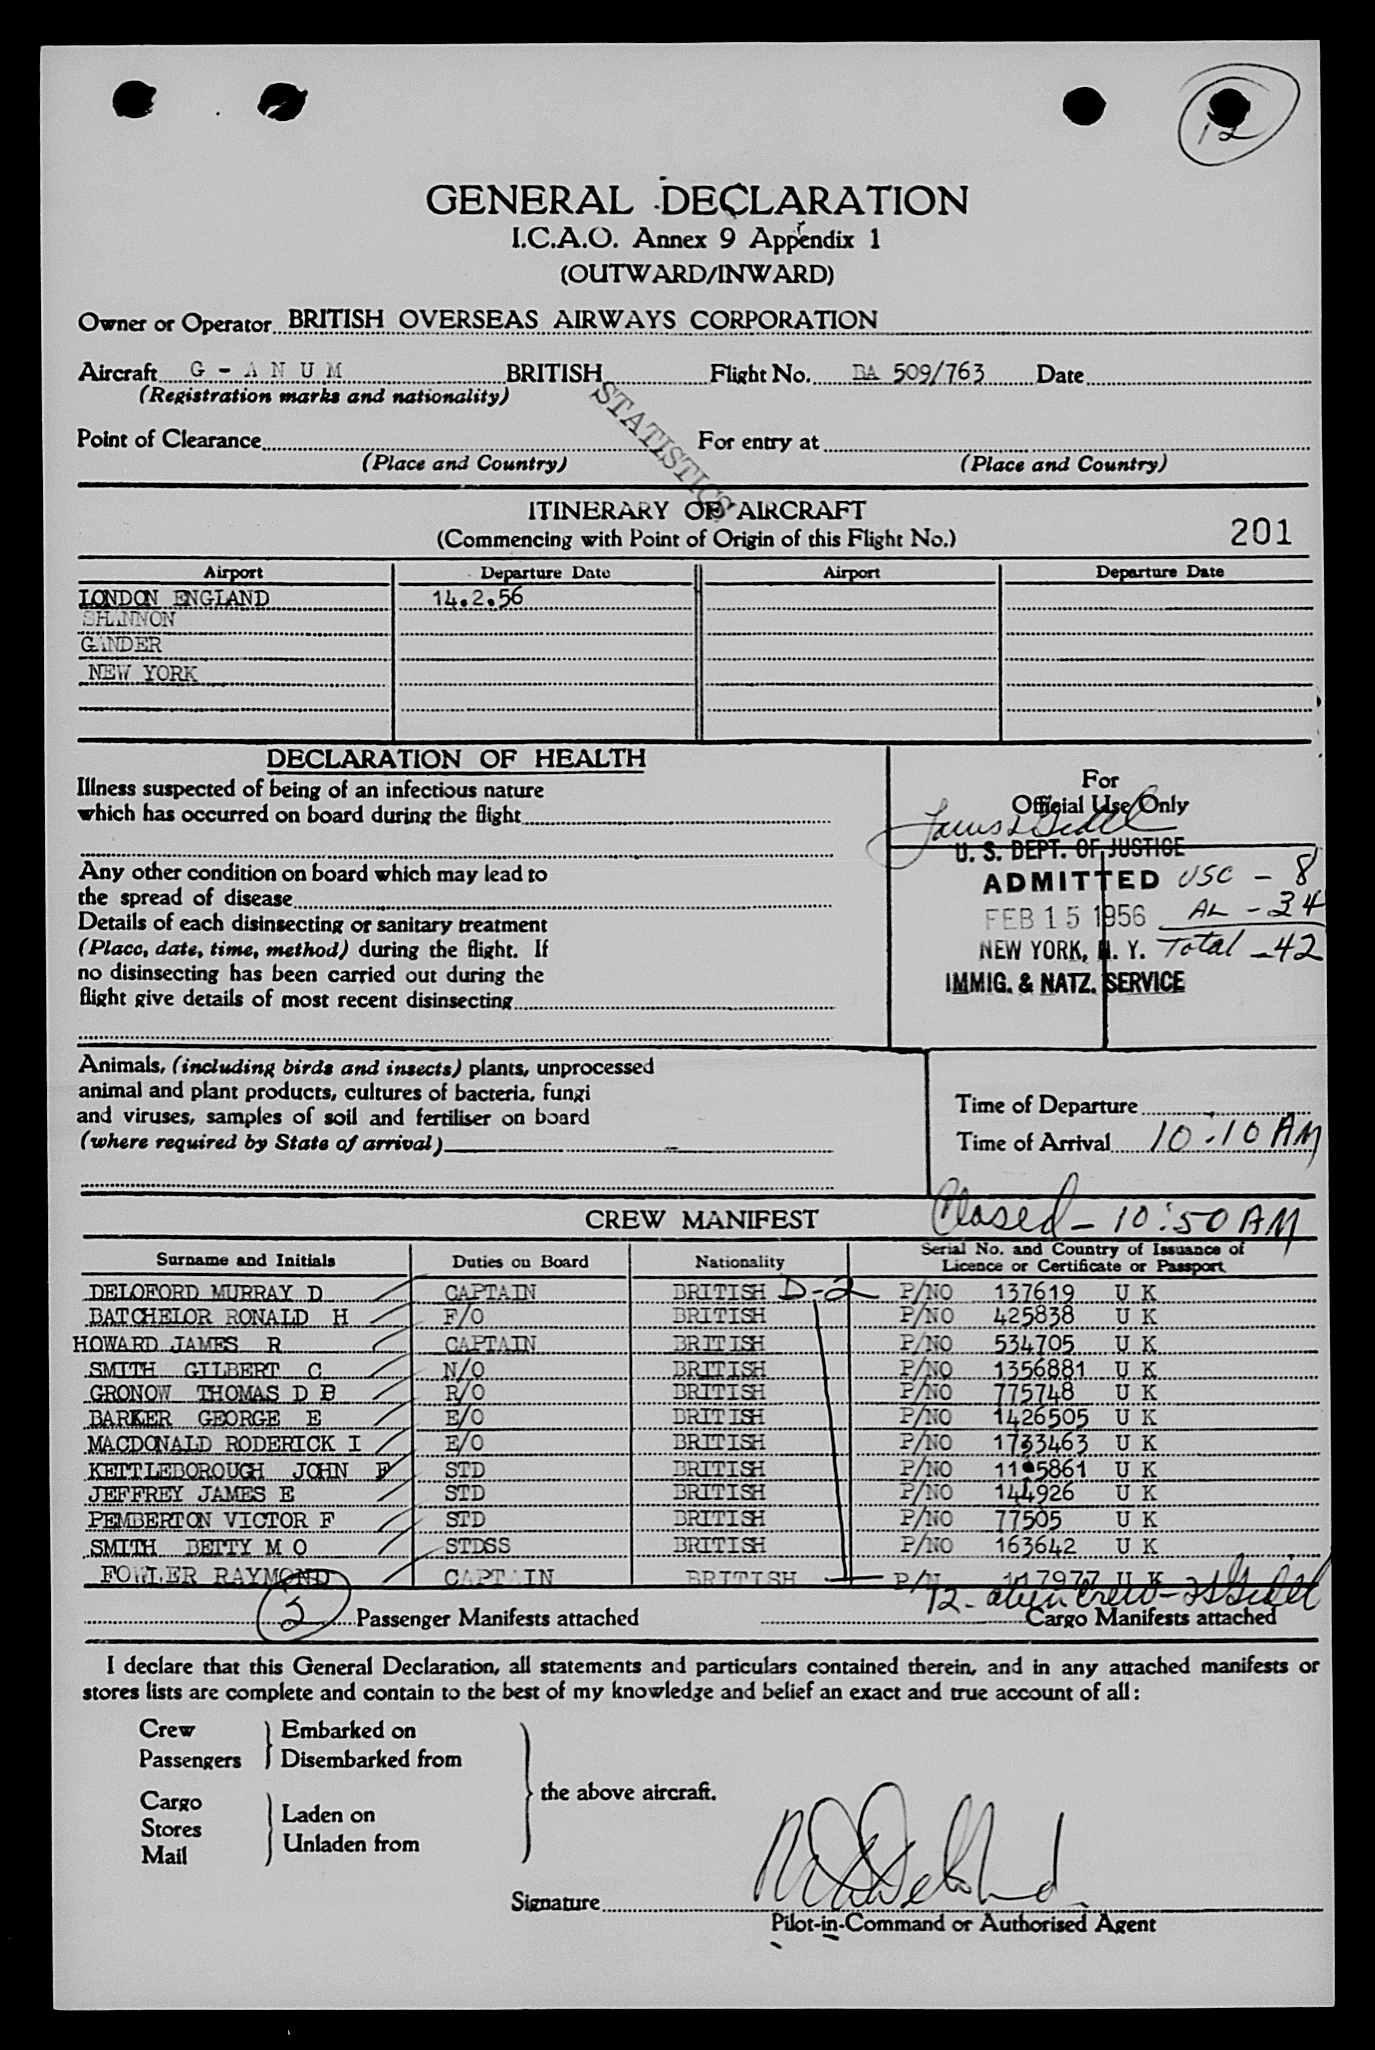 12
GENERAL DECLARATION
I.C.A.O. Annex 9 Appendix 1
(OUTWARD/INWARD)
Owner or Operator BRITISH OVERSEAS AIRWAYS CORPORATION
Aircraft G - A N U M BRITISH Flight No. BA 509/763 Date
(Registration marks and nationality)
STATISTICS
Point of Clearance For entry at
(Place and Country) (Place and Country)
ITINERARY OF AIRCRAFT
(Commencing with Point of Origin of this Flight No.) 201
Airport Departure Date Airport Departure Date
LONDON ENGLAND 14.2.56
SHANNON
GANDER
NEW YORK
DECLARATION OF HEALTH
Illness suspected of being of an infectious nature
which has occurred on board during the flight
Any other condition on board which may lead to
the spread of disease
Details of each disinsecting or sanitary treatment
(Place, date, time, method) during the flight. If
no disinsecting has been carried out during the
flight give details of most recent disinsecting
For
Official Use Only
U. S. DEPT. OF JUSTICE
ADMITTED USC - 8
FEB 15 1956 AL - 34
NEW YORK, N. Y. Total - 42
IMMIG. & NATZ. SERVICE
Animals, (including birds and insects) plants, unprocessed
animal and plant products, cultures of bacteria, fungi
and viruses, samples of soil and fertiliser on board
(where required by State of arrival)
Time of Departure
Time of Arrival 10.10 AM
Closed - 10:50 AM
CREW MANIFEST
Surname and Initials Duties on Board Nationality Serial No. and Country of Issuance of Licence or Certificate or Passport
DELOFORD MURRAY D CAPTAIN BRITISH D-2 P/NO 137619 U K
BATCHELOR RONALD H F/O BRITISH P/NO 425838 U K
HOWARD JAMES R CAPTAIN BRITISH P/NO 534705 U K
SMITH GILBERT C N/O BRITISH P/NO 1356881 U K
GRONOW THOMAS D R/O BRITISH P/NO 775748 U K
BARKER GEORGE E E/O BRITISH P/NO 1426505 U K
MACDONALD RODERICK I E/O BRITISH P/NO 1733463 U K
KETTLEBOROUGH JOHN F STD BRITISH P/NO U K
JEFFREY JAMES E STD BRITISH P/NO 144926 U K
PEMBERTON VICTOR F STD BRITISH P/NO 77505 U K
SMITH BETTY M O STDSS BRITISH P/NO 163642 U K
FOWLER RAYMOND CAPTAIN BRITISH P/N 117977 U K
12 - alien crew -
3 Passenger Manifests attached Cargo Manifests attached
I declare that this General Declaration, all statements and particulars contained therein, and in any attached manifests or
stores lists are complete and contain to the best of my knowledge and belief an exact and true account of all:
Crew Embarked on
Passengers Disembarked from
the above aircraft.
Cargo
Stores Laden on
Mail Unladen from
Signature
Pilot-in-Command or Authorised Agent